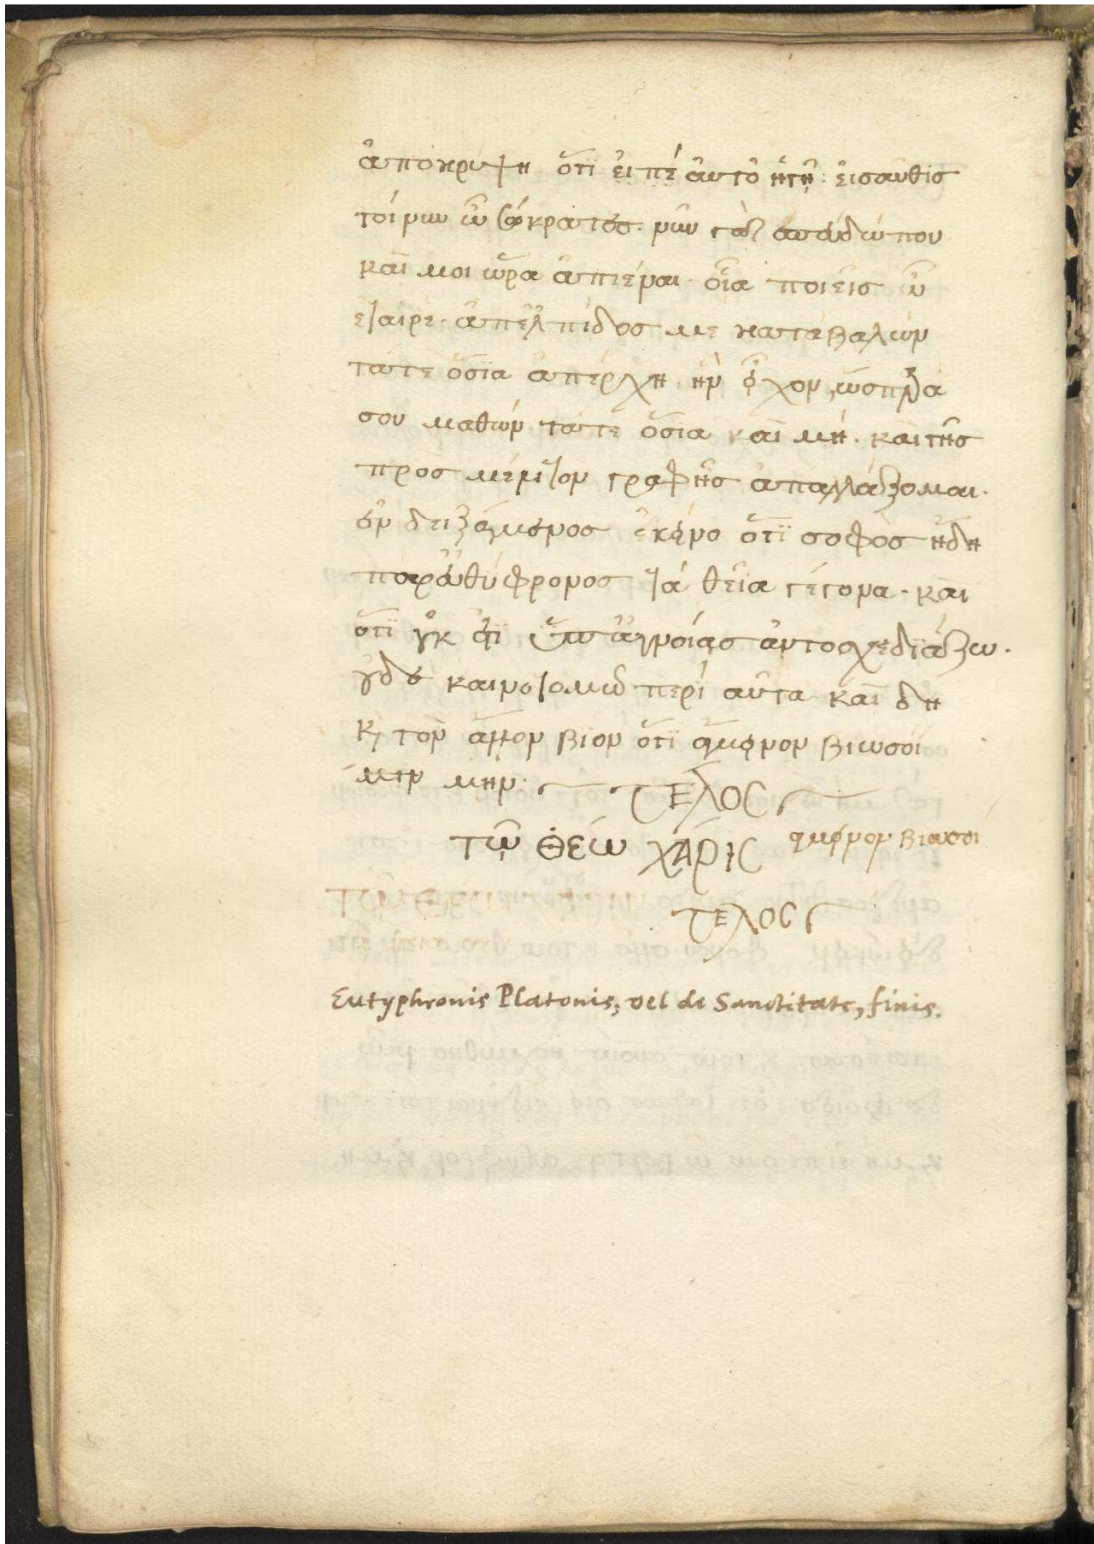 ἀποκρύψῃ ὅτι εἰπέ αὐτὸ ἡγῇ· εἰσαῦθις
τοίνυν ὦ Σώκρατες· νῦν γὰρ σπεύδω που
καὶ μοι ὥρα ἀπιέναι· οἷα ποιεῖς ὦ
ἑταῖρε· ἀπ' ἐλπίδος με καταβαλὼν
ἀπέρχῃ ἣν εἶχον, ὡς παρὰ
σου μαθὼν τάτε ὅσια καὶ μή· καὶ τῆς
πρὸς μέλιτον γραφῆς ἀπαλλάξομαι·
ἐνδειξάμενος ἐκείνο ὅτι σοφὸς ἤδη
παρ' εὐθύφρονος τά θεῖα γέγονα· καὶ
ὅτι οὐκ ἔτι ὑπ' ἀγνοίας αὐτοσχεδιάζω·
οὐδὲ καινοτομῶ περὶ αὐτὰ καὶ δὴ
κ τὸν ἄλλον βίον ὅτι ἄμεινον βιωσοί
μην·
ΤΕΛΟΣ
τῷ Θεῷ ΧΆΡΙΣ ἄμεινον βιωσοί
ΤΕΛΟΣ
Eutyphronis Platonis, vel de Sanctitate, finis.